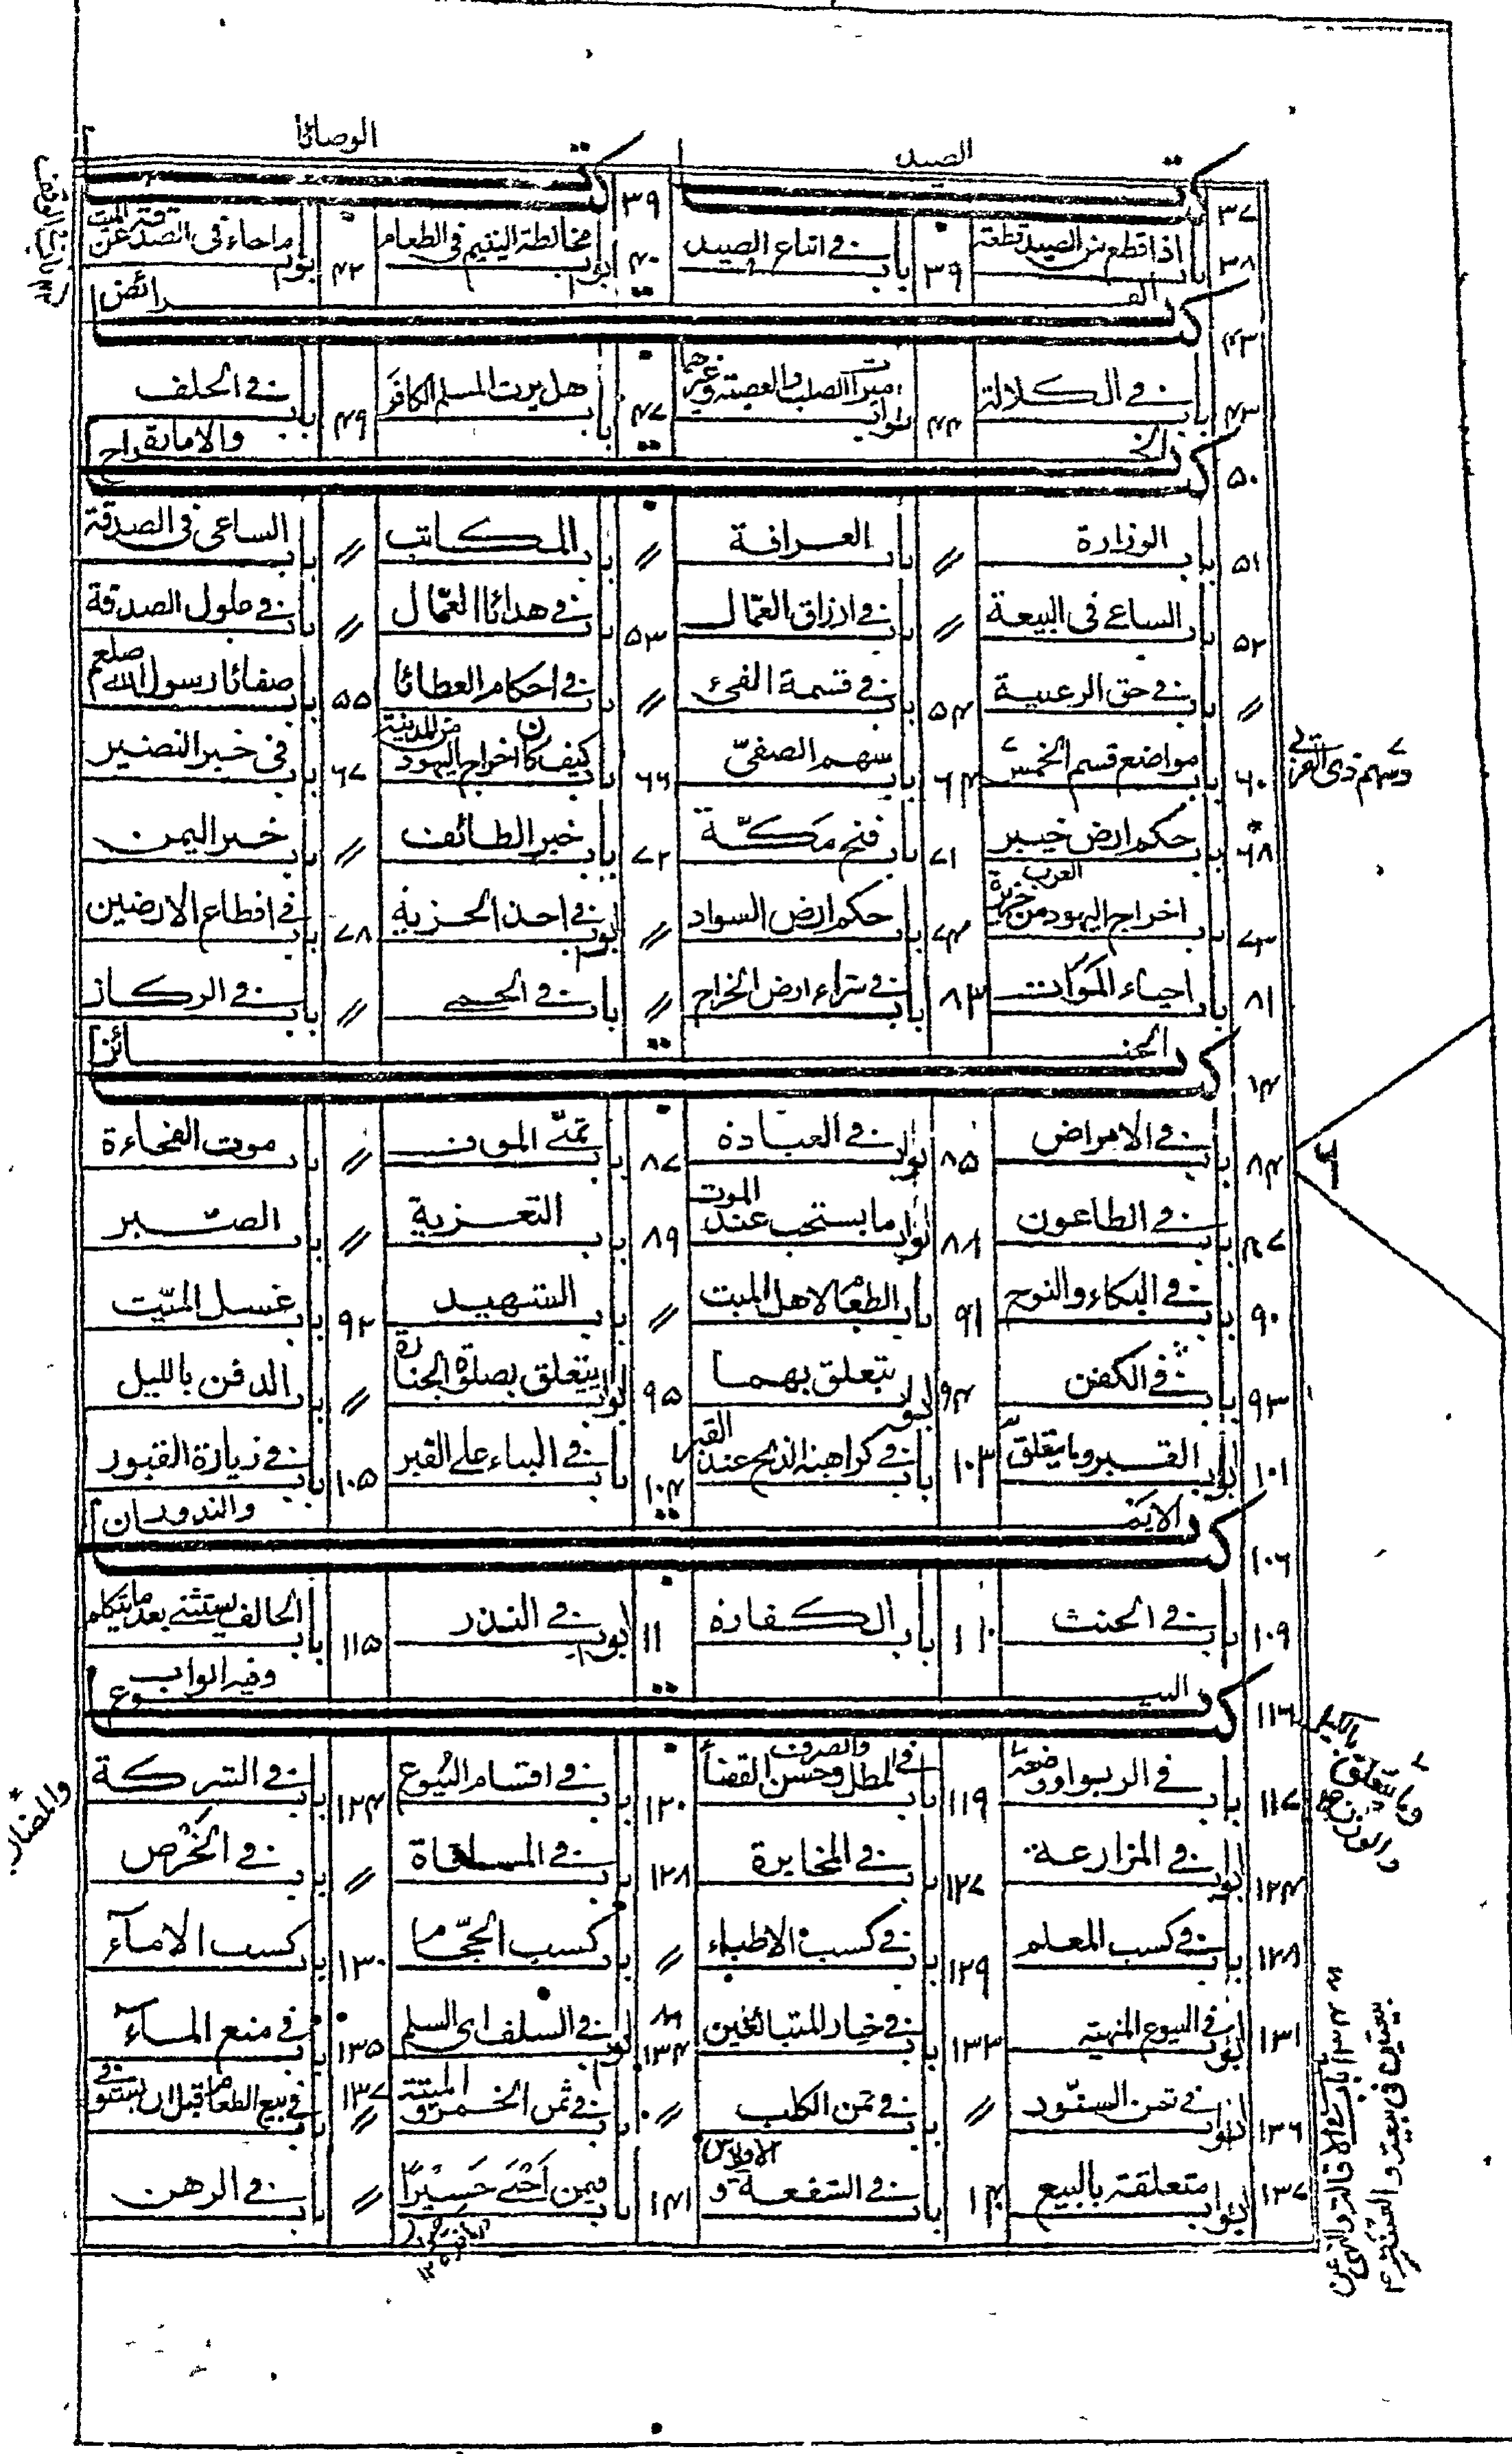 كتاب الصيد ٣٧ كتاب الوصايا ٣٩
٣٨ باب اذا قطع من الصيد قطعة ٣٩ باب في اتباع الصيد ٤٠ ابواب مخالطة اليتيم في الطعام ٤٢ ابواب ماجاء في الصدقة عن الميت
٤٣ كتاب الفرائض
٤٣ باب في الكلالة ٤٤ ابواب ميراث الصلب والعصبة وغيرهما ٤٧ باب هل يرث المسلم الكافر ٤٩ باب في الحلف
٥٠ كتاب الخراج والامارة
٥١ باب الوزارة // باب العرافة // باب المكاتب // باب الساعى في الصدقة
٥٢ باب الساعى في البيعة // باب في ارزاق العمّال ٥٣ باب في هدايا العمّال // باب في حلول الصدقة
// باب في حق الرعيية ٥٤ باب في قسمة الفيء // باب في احكام العطايا ٥٥ باب صفايا رسول الله صلعم
٦٠ باب مواضع قسم الخمس وسهم ذى القربى ٦٤ باب سهم الصفىّ ٦٦ باب كيف كان اخراج اليهود من المدينة ٦٧ باب في خبر النضير
٦٨ باب حكم ارض خيبر ٧١ باب فتح مكّة ٧٢ باب خبر الطائف // باب خبر اليمن
٧٣ باب اخراج اليهود من جزيرة العرب ٧٤ باب حكم ارض السواد // ابواب في اخذ الجزية ٧٨ باب في اقطاع الارضين
٨١ باب احياء الموات ٨٣ باب في شراء ارض الخراج // باب في الحمى // باب في الركاز
٨٤ كتاب الجنائز
٨٤ باب في الامراض ٨٥ ابواب في العيادة ٨٧ باب تمنّى الموت // باب موت الفجاءة
٨٧ باب في الطاعون ٨٨ ابواب ما يستحب عند الموت ٨٩ باب التعزية // باب الصبر
٩٠ باب في البكاء والنوح ٩١ باب الطعام لاهل الميت // باب الشهيد ٩٢ باب غسل الميّت
٩٣ باب في الكفن ٩٤ ابواب يتعلق بهما ٩٥ ابواب يتعلق بصلوة الجنازة // باب الدفن بالليل
١٠١ ابواب القبر وما يتعلق ١٠٣ باب في كراهية الذبح عند القبر ١٠٤ باب في البناء على القبر ١٠٥ باب في زيارة القبور
١٠٦ كتاب الايمان والنذور
١٠٩ باب في الحنث ١١٠ باب الكفارة ١١١ ابواب في النذر ١١٥ باب الحالف يستثنى بعد ما يتكلم
١١٦ كتاب البيوع وفيه ابواب
١١٧ باب في الربوا ووضعه وما يتعلق بالكيل والوزن ١١٩ باب في المطل وحسن القضاء والصرف ١٢٠ باب في اقسام البيوع ١٢٤ باب في الشركة والمضاربة
١٢٤ ابواب في المزارعة ١٢٧ باب في المخابرة ١٢٨ باب في المساقاة // باب في الخرص
١٢٨ باب في كسب المعلم ١٢٩ باب في كسب الاطباء // باب كسب الحجّام ١٣٠ باب كسب الامآء
١٣١ ابواب في البيوع المنهية ١٣٣ باب في خيار المتبائعين ١٣٤ ابواب في السلف اى السلم ١٣٥ باب في منع المآء
١٣٦ ابواب في ثمن السنّور // باب في ثمن الكلب // باب في ثمن الخمر والميتة ١٣٧ باب في بيع الطعام قبل ان يستوفى
١٣٧ ابواب متعلقة بالبيع ١٤٠ باب في الشفعة و ١٤١ باب فيمن احيى حسيرًا // باب في الرهن
١٣٤ باب في الاقالة والنهى عن
بيعتين في بيعة